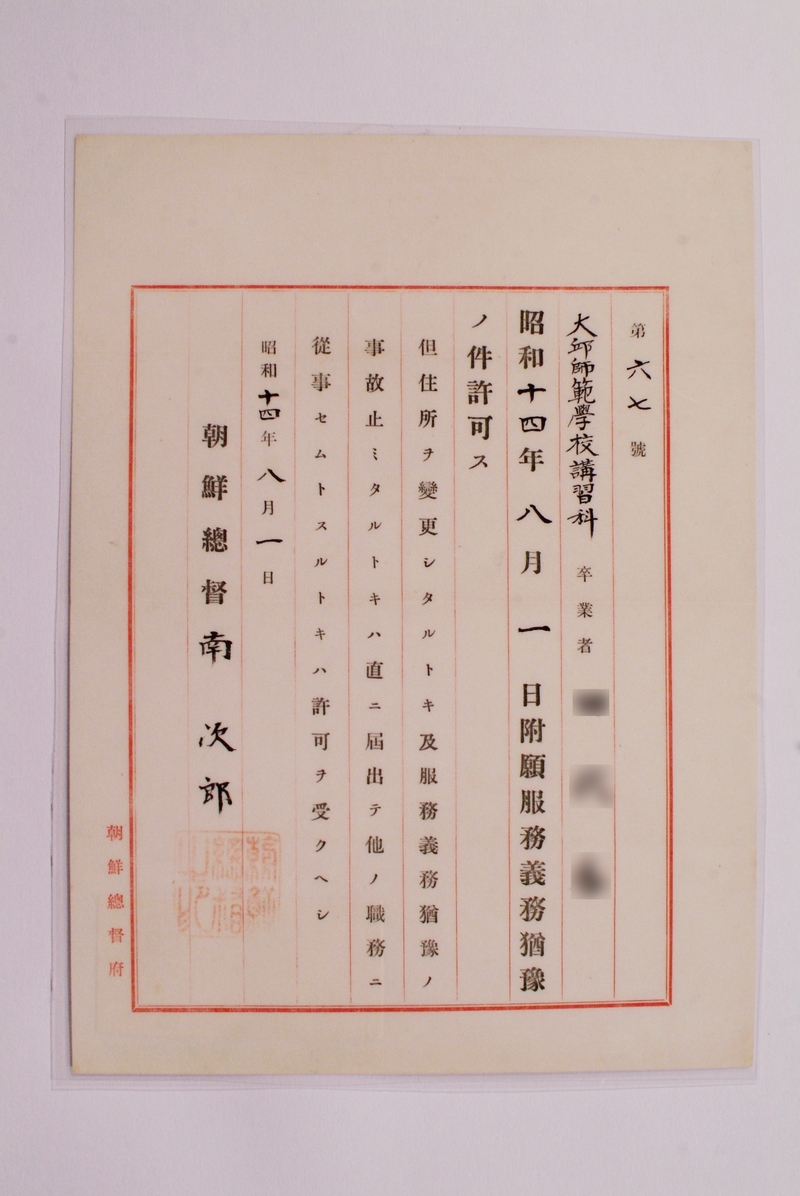 第六七號
大邱師範學校講習科卒業者
昭和十四年八月一日附願服務義務猶豫
ノ件許可ス
但住所ヲ變更シタルトキ及服務義務猶豫ノ
事故止ミタルトキハ直ニ屆出テ他ノ職務ニ
從事セムトスルトキハ許可ヲ受クヘシ
昭和十四年八月一日
朝鮮總督南次郎
朝鮮總督府